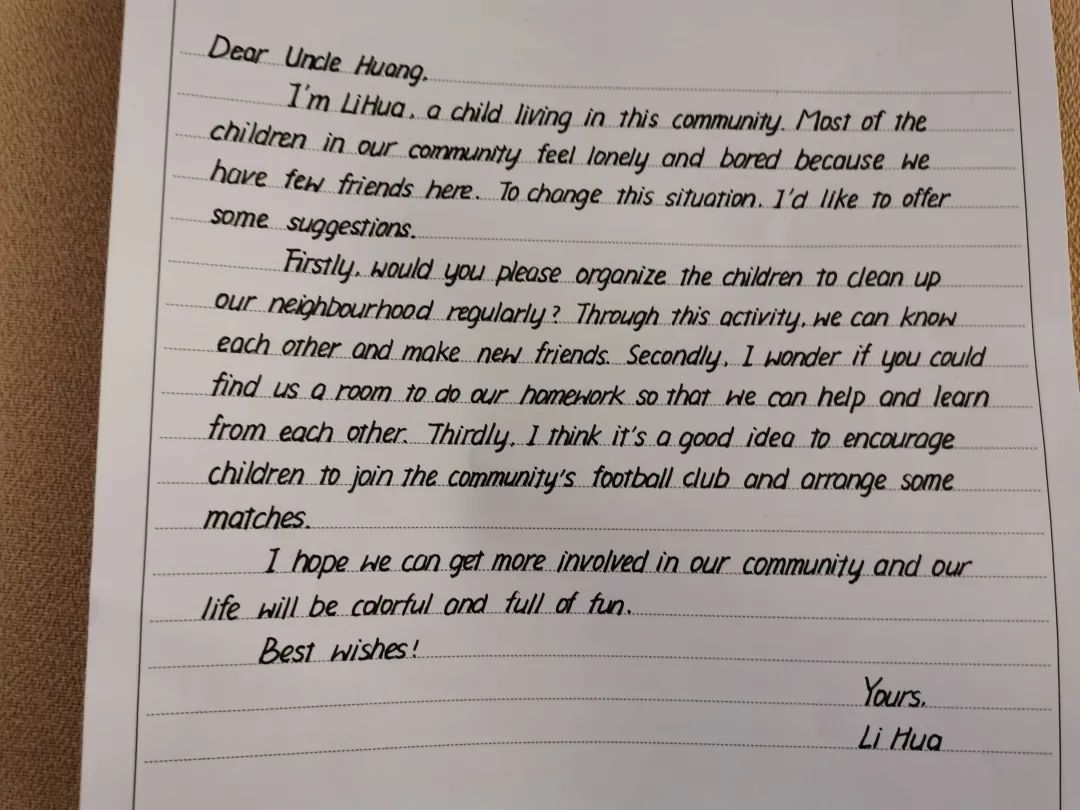 Dear Uncle Huang,
I'm LiHua, a child living in this community. Most of the
children in our community feel lonely and bored because we
have few friends here. To change this situation, I'd like to offer
some suggestions.
Firstly, would you please organize the children to clean up
our neighbourhood regularly? Through this activity, we can know
each other and make new friends. Secondly, I wonder if you could
find us a room to do our homework so that we can help and learn
from each other. Thirdly, I think it's a good idea to encourage
children to join the community's football club and arrange some
matches.
I hope we can get more involved in our community and our
life will be colorful and full of fun.
Best wishes!
Yours,
Li Hua